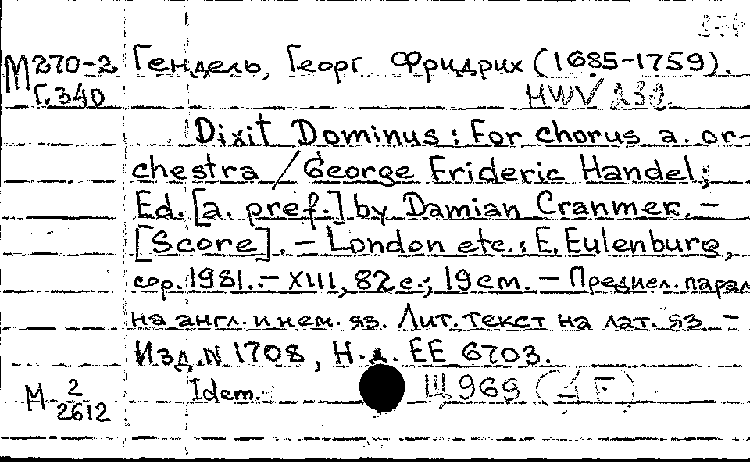 М270-2 Гендель, Георг Фридрих (1685-1759).
Г.340 HWV 232
Dixit Dominus: For chorus a. or-
chestra / George Frideric Handel;
Ed. [a. pref.] by Damian Cranmer. –
[Score]. – London etc.: E. Eulenburg,
cop. 1981. – XIII, 82 c.; 19 cm. – Предисл. парал.
на англ. и нем. яз. Лит. текст на лат. яз. –
Изд. N 1708, Н.д. EE 6703.
М 2/2612 Idem. Щ 969